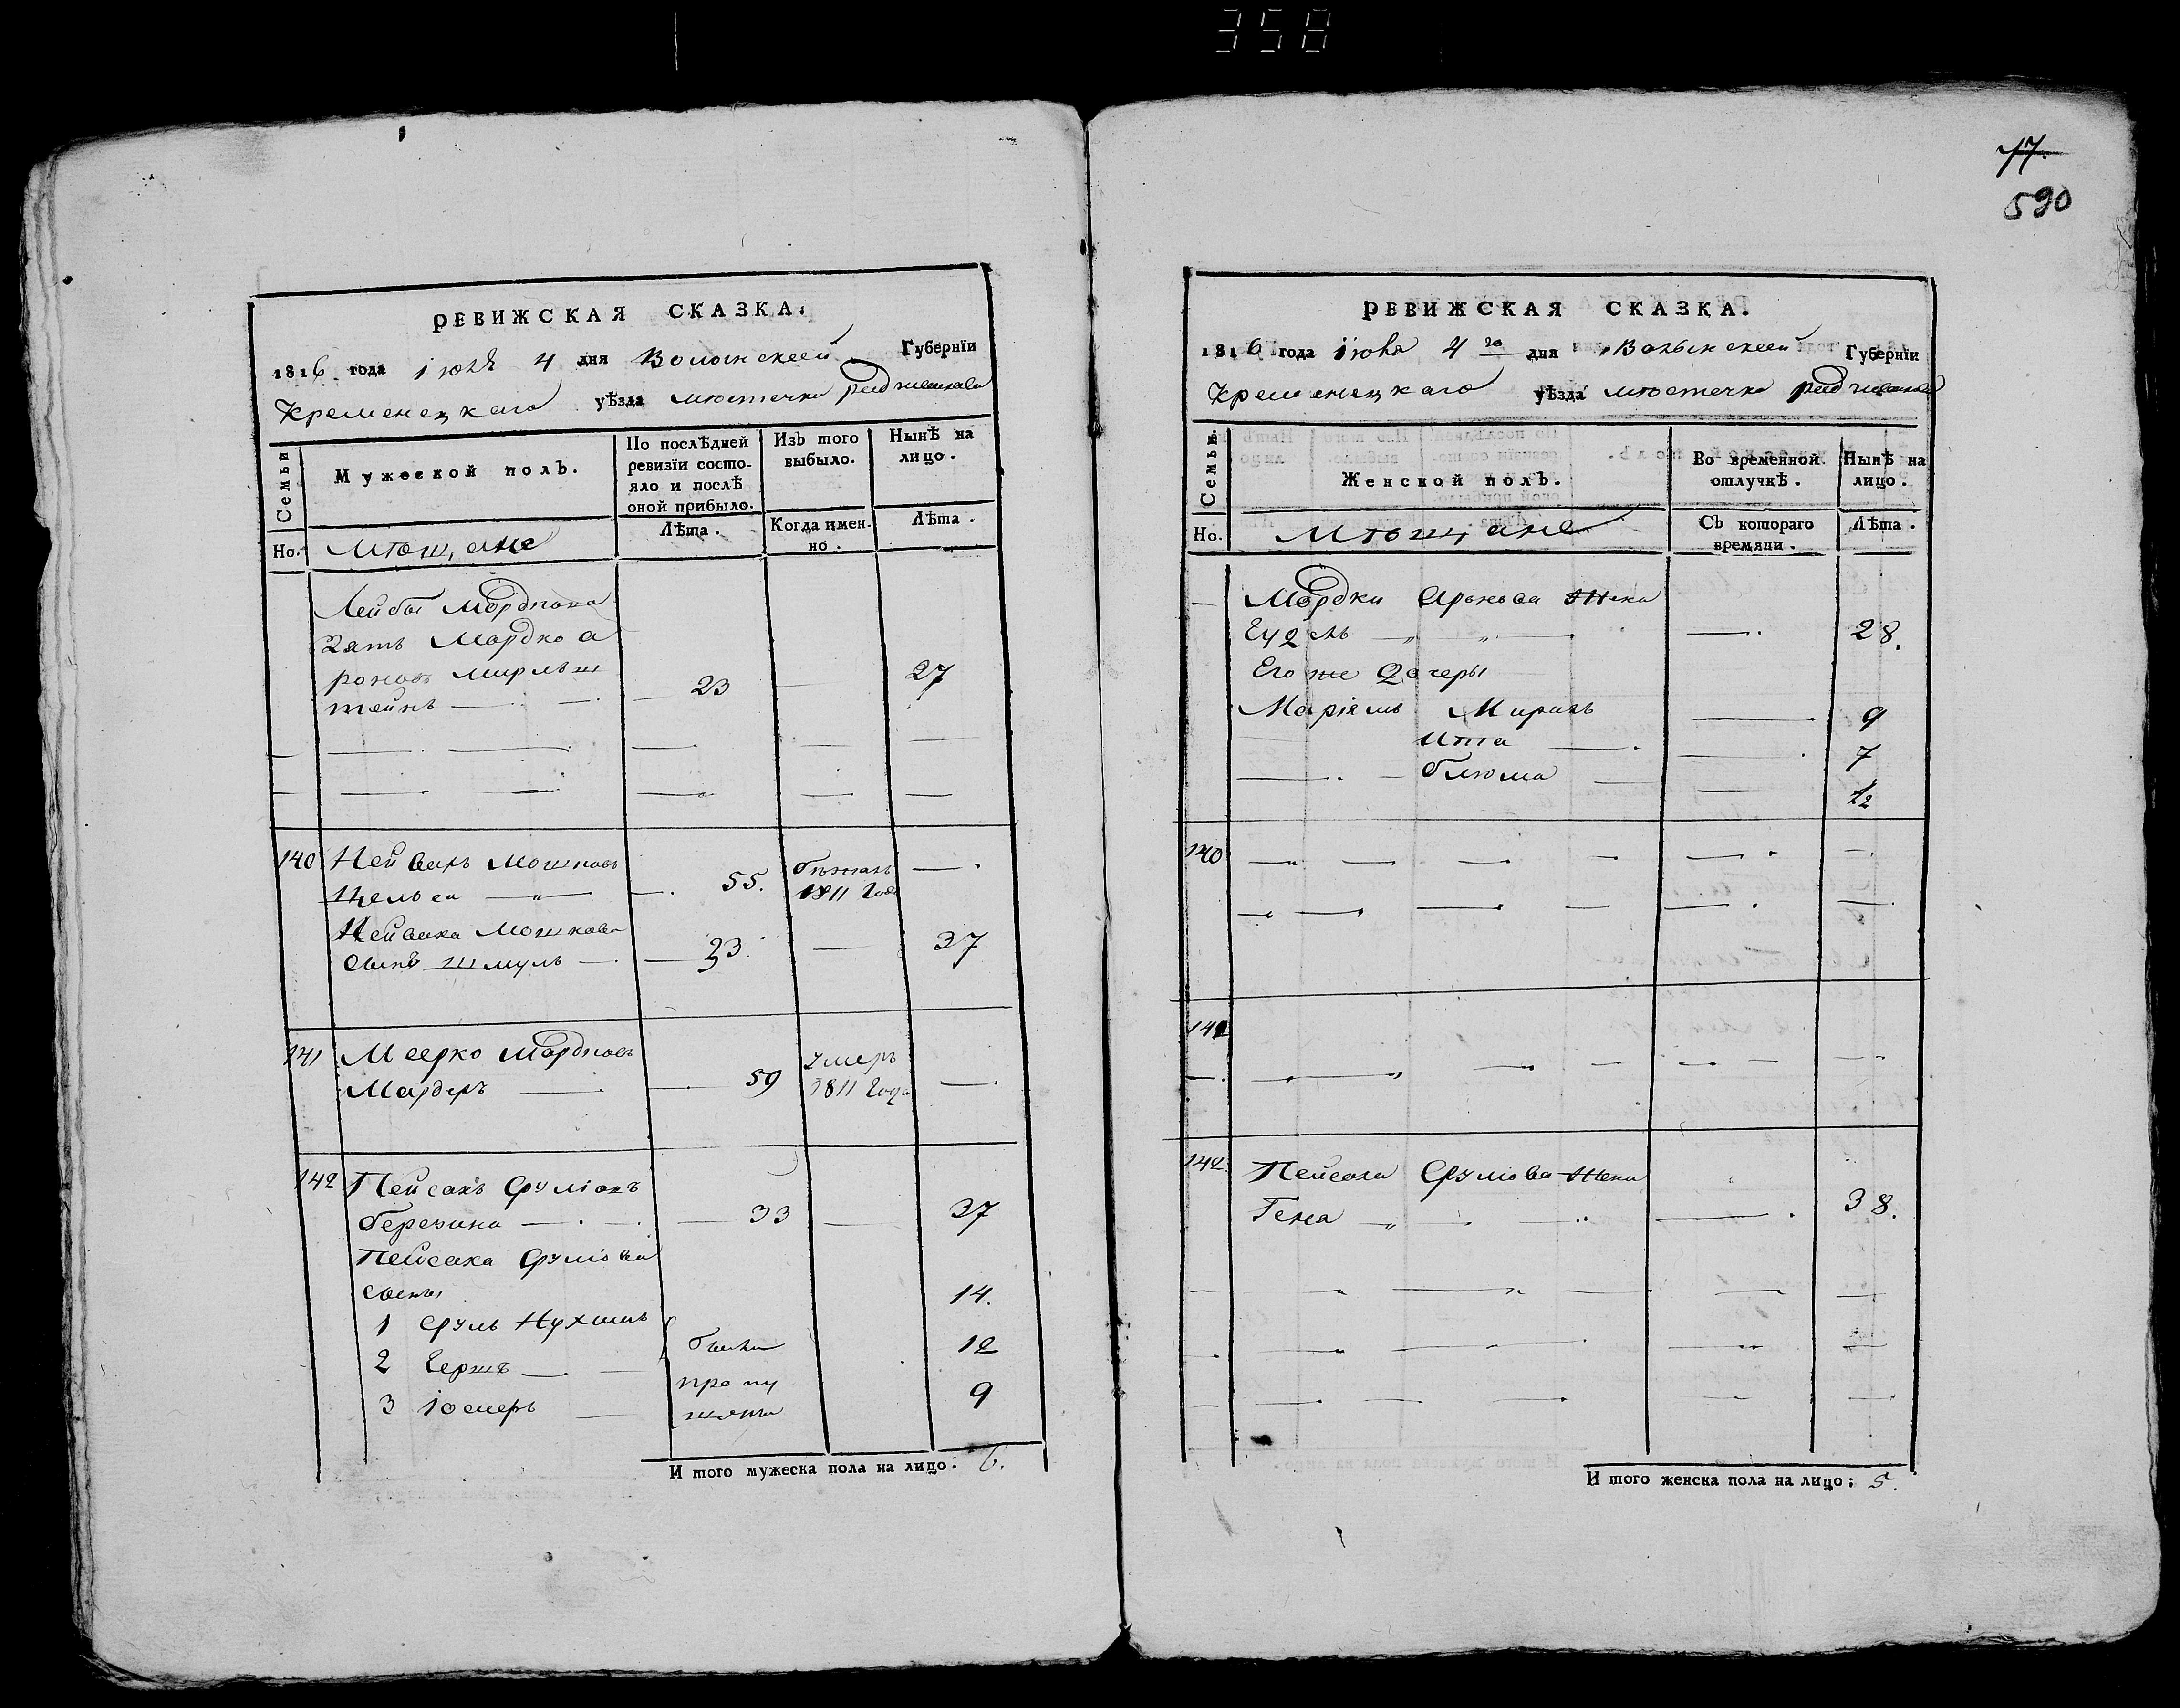 358
77.
590
РЕВИЖСКАЯ СКАЗКА.
1816 года Iюля 4 дня Волынской Губернїи
Кременецкаго уѣзда мѣстечка
Семьи
Мужеской полъ.
По послѣдней ревизїи состояло и послѣ оной прибыло.
Изъ того выбыло.
Нынѣ на лицо.
Но.
Мѣщане
Лѣта.
Когда именно.
Лѣта.
Лейбы Мордкова
Зять Мордко а
роновъ Мирльш
тейнъ — 23 — 27
140 Мошковъ
— 55. бѣжалъ 1811 Года —
Мошкова
сынъ Шмуль — 23. — 37
141 Меерко Мордковъ
Мардеръ — 59 умеръ 1811 Года —
142 Пейсахъ Срулiовъ
Березина — 33 — 37
Пейсаха Срулiова
сыны
1 Сруль Нухимъ 14.
2 Гершъ — были 12
3 Iосеръ — пропущены 9
И того мужеска пола на лицо: 6.
РЕВИЖСКАЯ СКАЗКА.
1816 года Iюля 4 го дня Волынской Губернїи
Кременецкаго уѣзда мѣстечка
Семьи.
Женской полъ.
Во временной отлучкѣ.
Нынѣ на лицо.
Но.
Мѣщане
Съ котораго времяни.
Лѣта.
Мордки Аронова Жена
— 28.
Его же Дочеры
Марїямъ Мириль — 9
Ита — 7
Блюма — 1/2
140
141
142 Пейсаха Срулiова Жена
Геня — 38.
И того женска пола на лицо: 5.